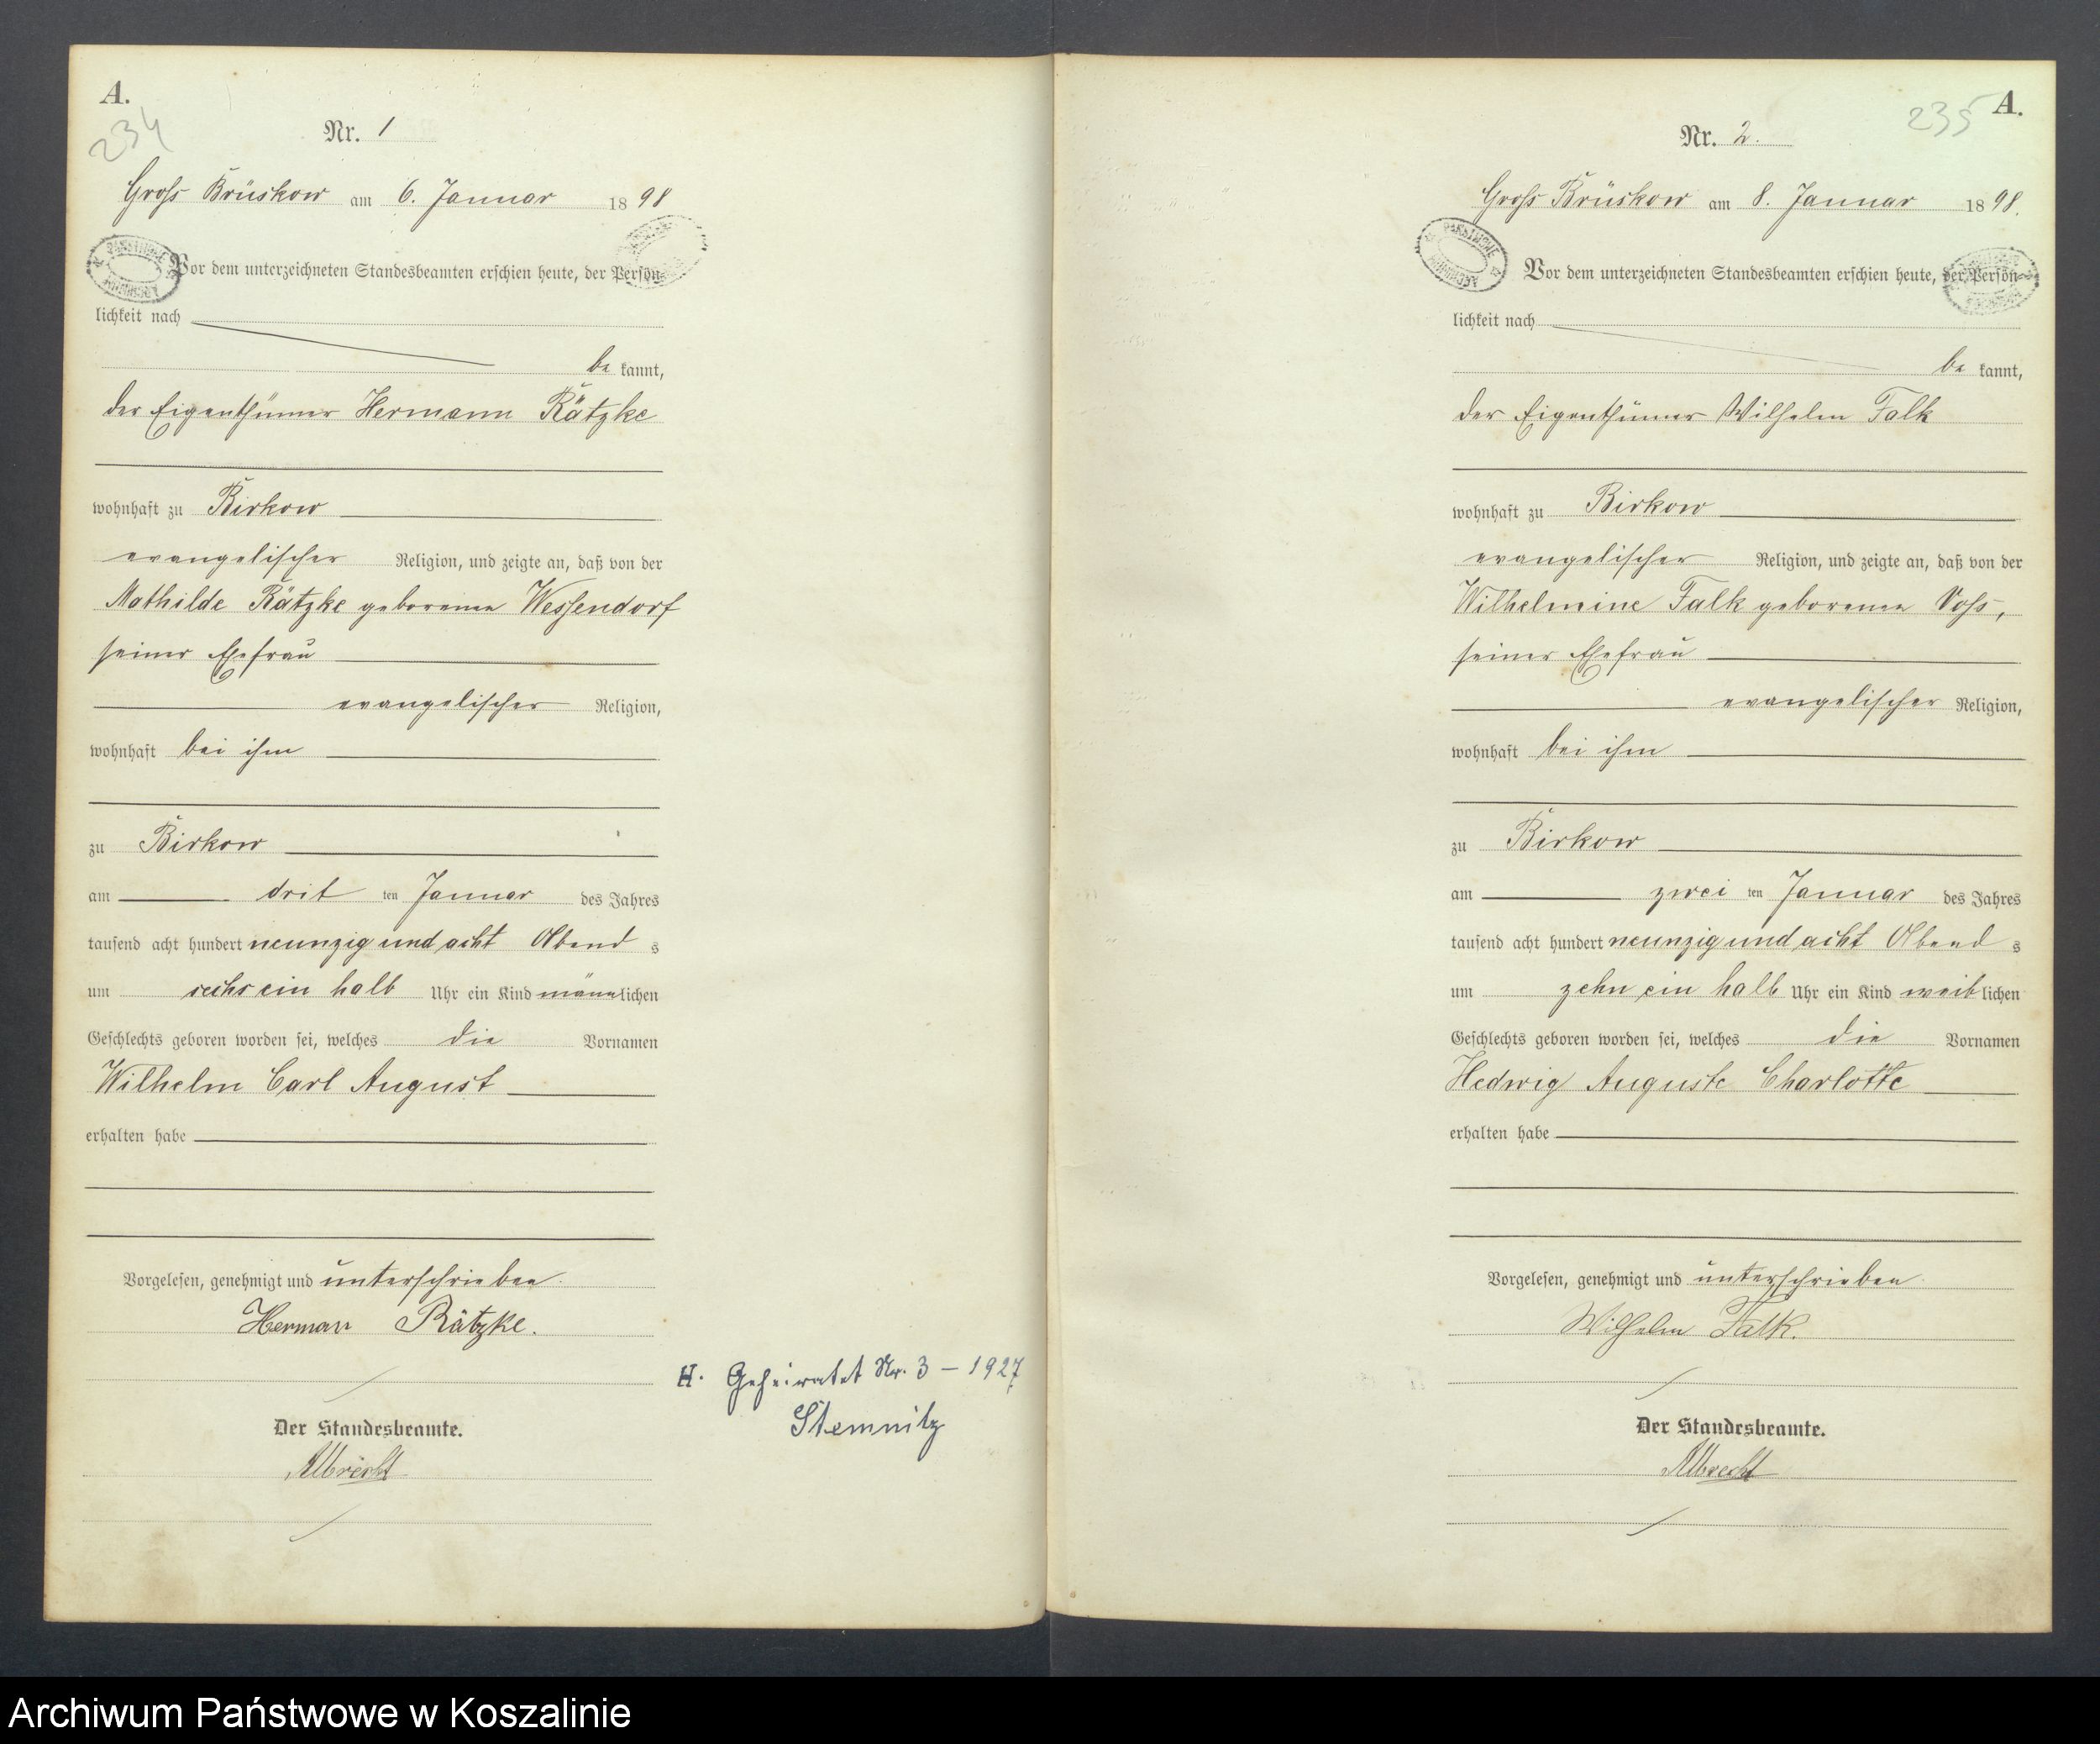 A.
234
Nr. 1
Gross Brüskow am 6. Januar 1898
Vor dem unterzeichneten Standesbeamten erschien heute, der Persön-
lichkeit nach
be kannt,
der Eigenthümer Hermann Rätzke
wohnhaft zu Birkow
evangelischer Religion, und zeigte an, daß von der
Mathilde Rätzke geborenen Wessendorf
seiner Ehefrau
evangelischer Religion,
wohnhaft bei ihm
zu Birkow
am drit ten Januar des Jahres
tausend acht hundert neunzig und acht Abend s
um sechs ein halb Uhr ein Kind männlichen
Geschlechts geboren worden sei, welches die Vornamen
Wilhelm Carl August
erhalten habe
Vorgelesen, genehmigt und unterschrieben.
Herman Rätzke.
Der Standesbeamte.
Albrecht
H. Geheiratet Nr. 3 – 1927
Stemnitz
235 A.
Nr. 2.
Gross Brüskow am 8. Januar 1898.
PAŃSTWOWE ARCHIWUM
Vor dem unterzeichneten Standesbeamten erschien heute, der Persön-
lichkeit nach
be kannt,
der Eigenthümer Wilhelm Falk
wohnhaft zu Birkow
evangelischer Religion, und zeigte an, daß von der
Wilhelmine Falk geborenen Voss,
seiner Ehefrau
evangelischer Religion,
wohnhaft bei ihm
zu Birkow
am zwei ten Januar des Jahres
tausend acht hundert neunzig und acht Abend s
um zehn ein halb Uhr ein Kind weiblichen
Geschlechts geboren worden sei, welches die Vornamen
Hedwig Auguste Charlotte
erhalten habe
Vorgelesen, genehmigt und unterschrieben
Wilhelm Falk.
Der Standesbeamte.
Albrecht
Archiwum Państwowe w Koszalinie